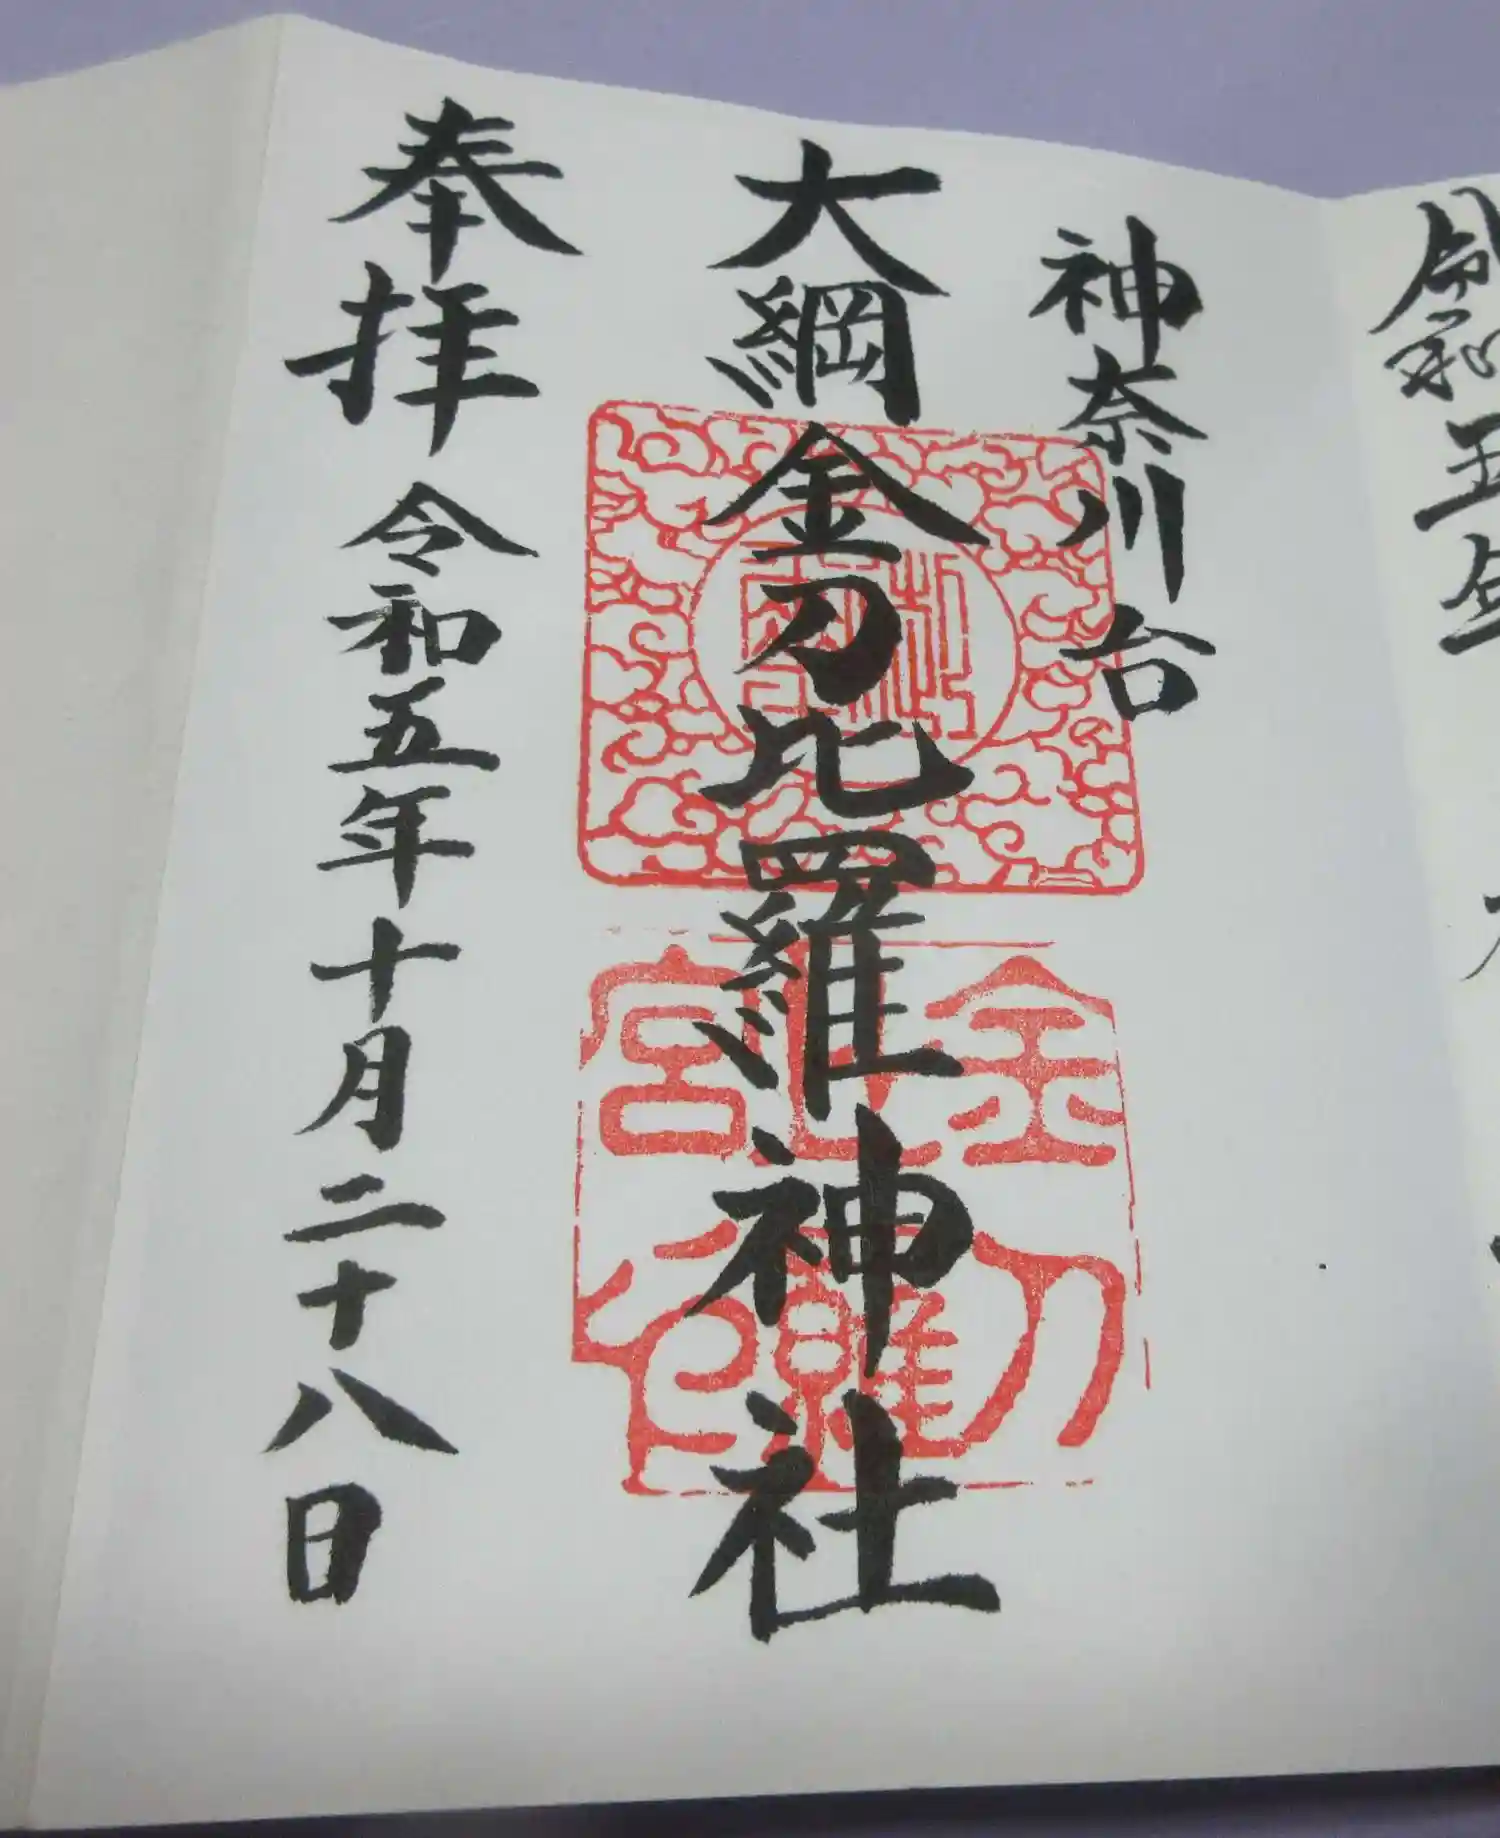 令和五年
神奈川台
大綱金刀比羅神社
奉拝 令和五年十月二十八日
金刀
比羅
宮